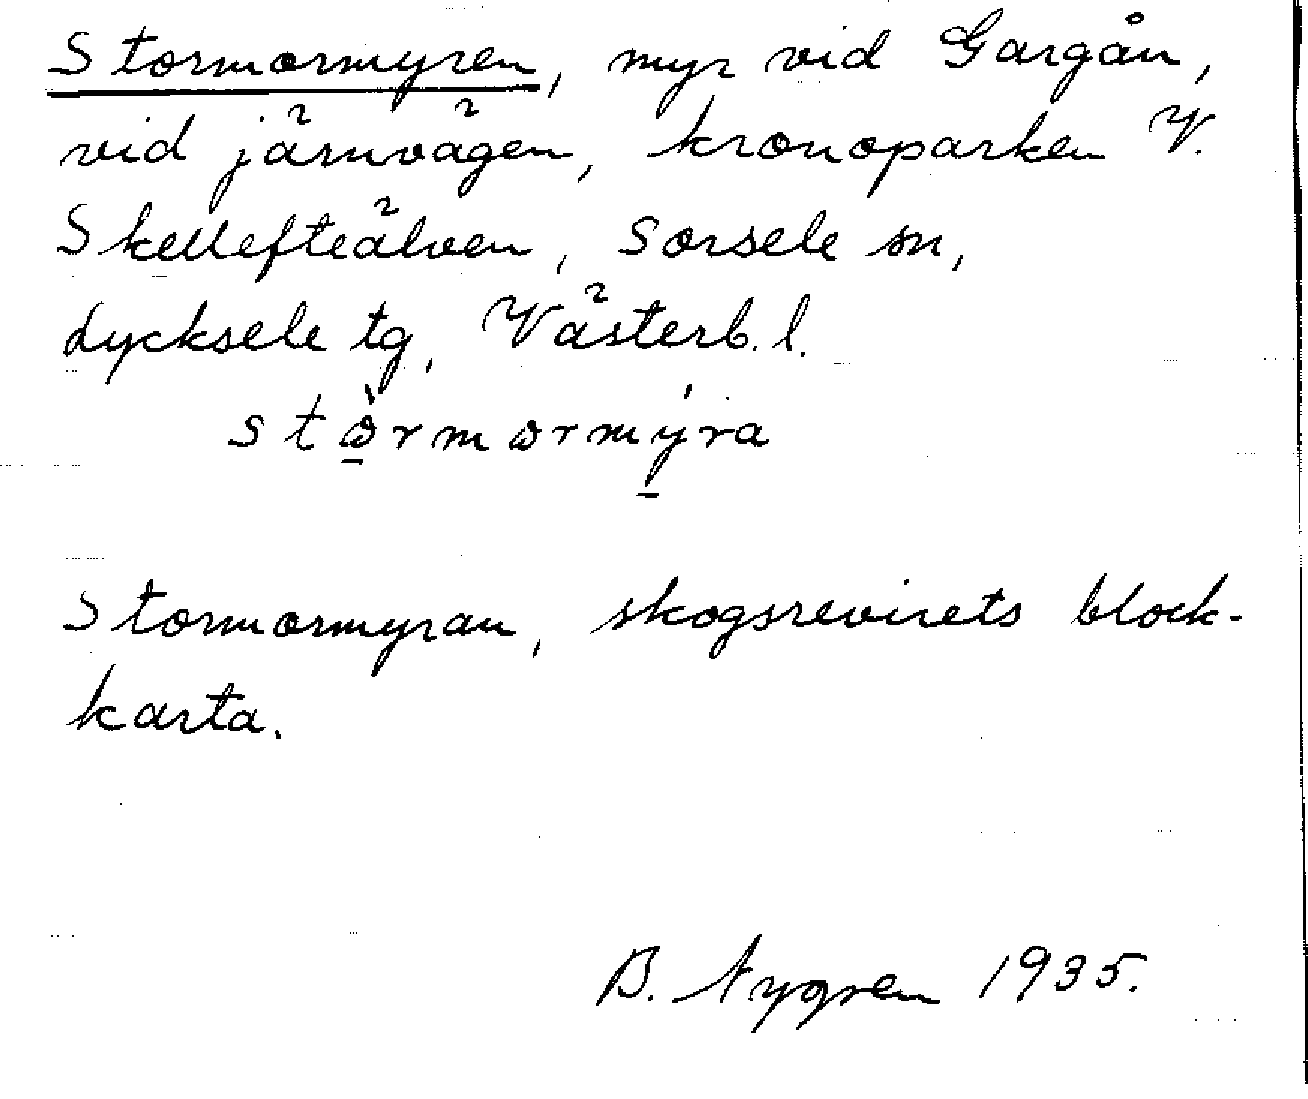 Stormormyren, myr vid Gargån,
vid järnvägen, kronoparken V.
Skellefteälven, Sorsele sn,
Lycksele tg, Västerb. l.
stòrmormýra
Stormormyran, skogsrevirets block-
karta.
B. Nygren 1935.